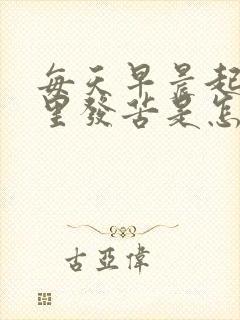 每天早晨起
里發苦是怎
古亞偉